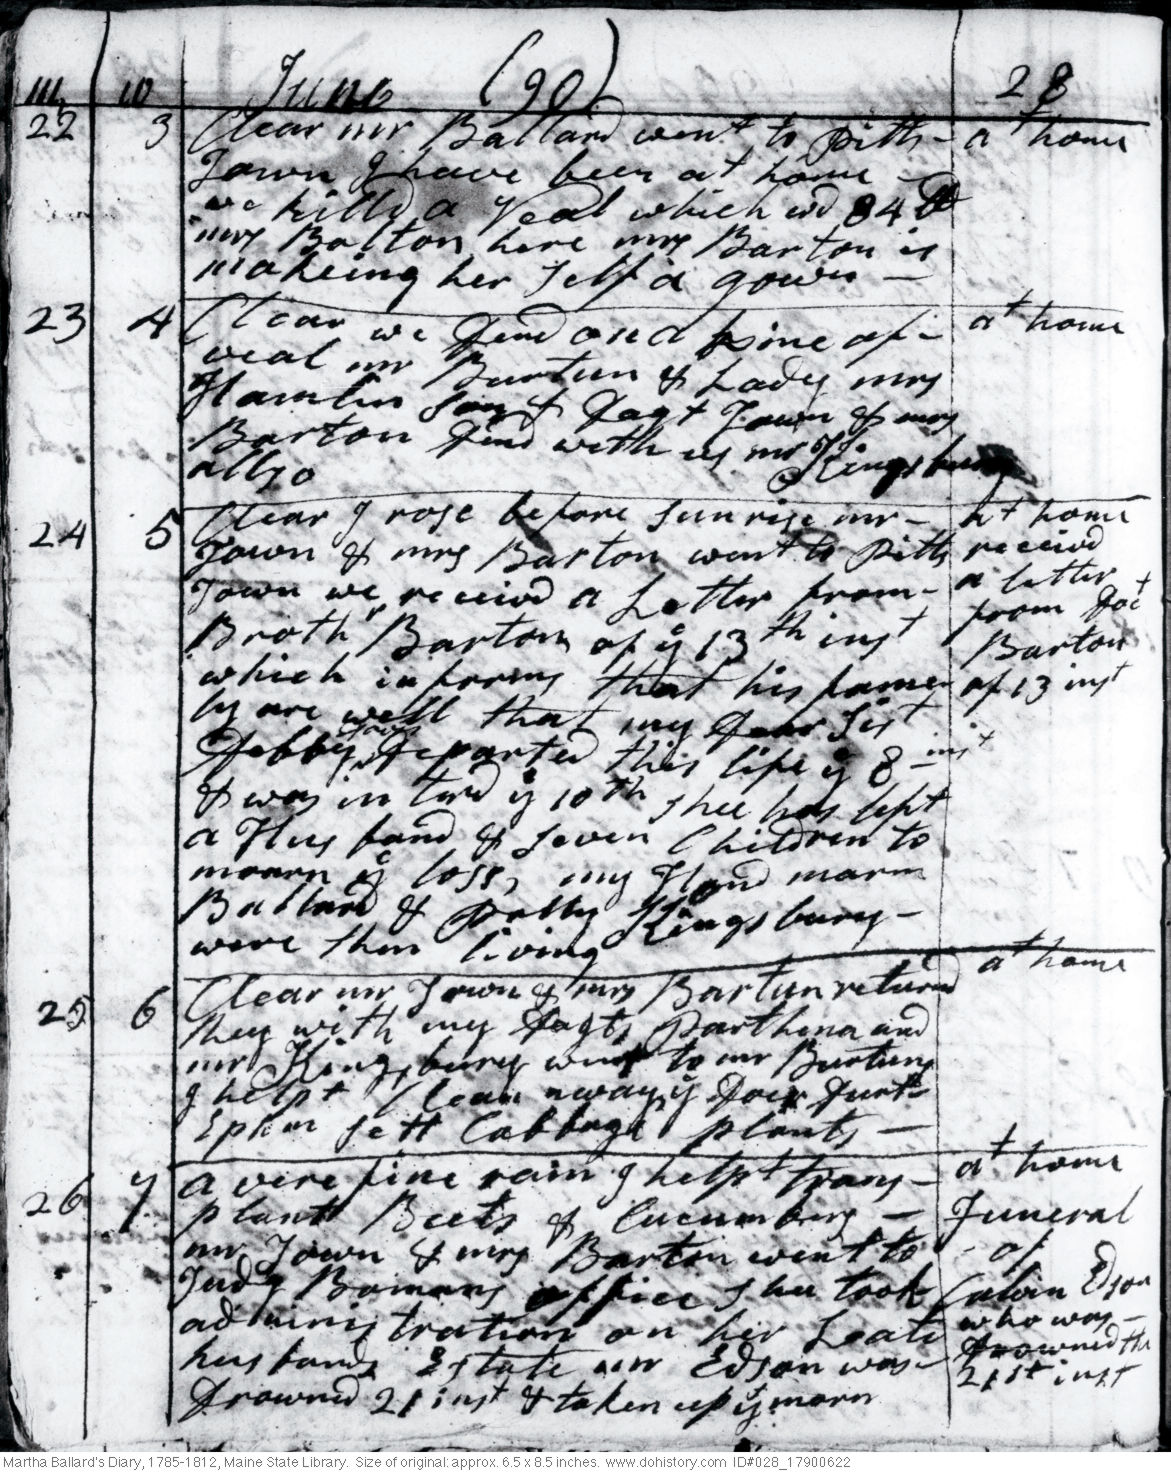 m D June (90) 28
22 3 Clear mr Ballard went to Pitts- at home
Town I have been at home
we killd a Veal which wd 84 lb
mrs Bolton here mrs Barton is
makeing her self a gown —
23 4 Clear we dind on a fine of- at home
veal mr Burtun & Lady mrs
Hamlin Son & dagt Town & mrs
Barton dind with us mr Kingsbury
allso
24 5 Clear I rose before sunrise mr- at home
Town & mrs Barton went to Pitts receivd
Town we receivd a Letter from- a letter
Brothr Barton of ye 13th inst from Doct
which informs that his fame Barton
ly are well that my Dear Sist of 13 inst
Debby departed this life ye 8 inst
& was in terd ye 10th shee has left
a Husband & seven Children to
mourn ye loss, my Hond marm
Ballard & Polly Kingsbury-
were then living
25 6 Clear mr Town & mrs Barton returnd at home
they with my dagts Parthena and
mr Kingsbury went to mr Burtuns
I helpt Clear away ye Door durt
Ephm sett Cabbage plants —
26 7 a vere fine rain I helpt trans- at home
plant Beets & Cucumbers — Funeral
mr Town & mrs Barton went to of
Judg Bomans office shee took Calvin Edson
administration on her Leate who was-
husbands Estate mr Edson was drowned the
drownd 21 inst & taken up ye morn 21st inst
Martha Ballard's Diary, 1785-1812, Maine State Library. Size of original: approx. 6.5 x 8.5 inches. www.dohistory.com ID#028_17900622